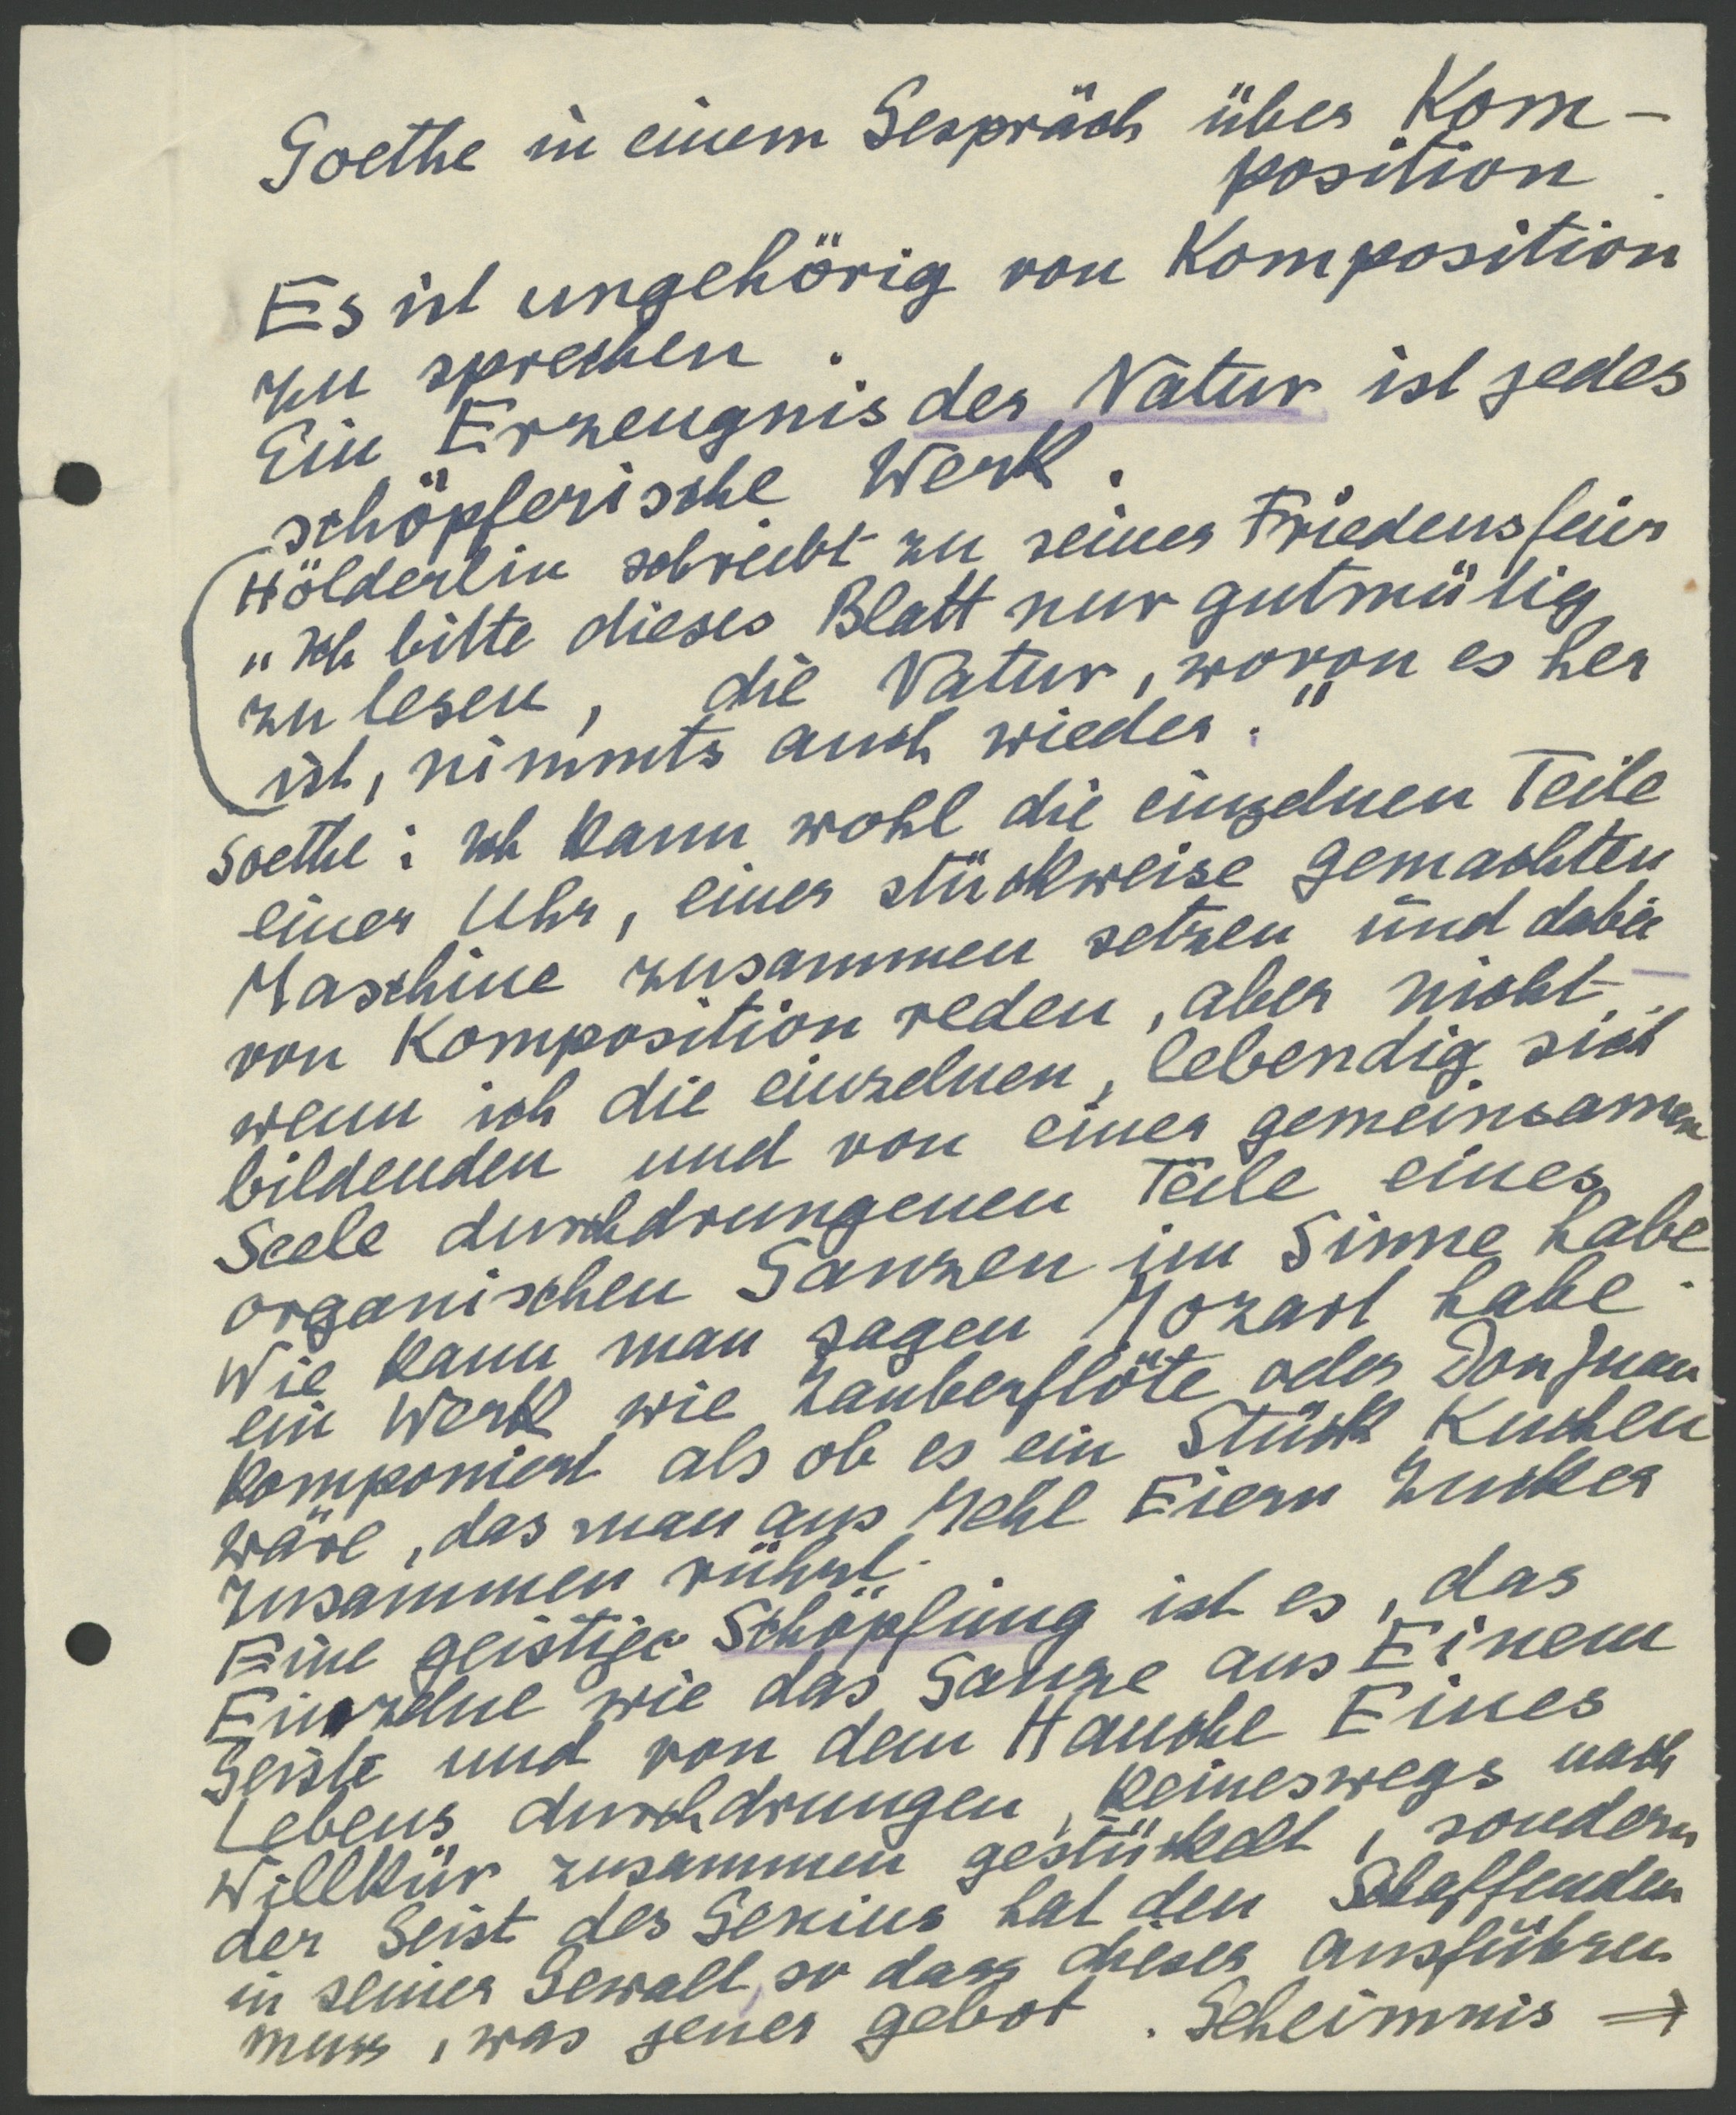 Goethe in einem Gespräch über Kom-
position.
Es ist ungehörig von Komposition
zu sprechen.
Ein Erzeugnis der Natur ist jedes
schöpferische Werk.
Hölderlin schreibt zu seiner Friedensfeier
"Ich bitte dieses Blatt nur gutmütig
zu lesen, die Natur, wovon es her
ist, nimmts auch wieder."
Goethe: Ich kann wohl die einzelnen Teile
einer Uhr, einer stückweise gemachten
Maschine zusammen setzen und dabei
von Komposition reden, aber nicht
wenn ich die einzelnen, lebendig sich
bildenden und von einer gemeinsamen
Seele durchdrungenen Teile eines
organischen Ganzen im Sinne habe.
Wie kann man sagen Mozart habe
ein Werk wie Zauberflöte oder Don Juan
komponiert als ob es ein Stück Kuchen
wäre, das man aus Mehl Eiern Zucker
zusammen rührt.
Eine geistige Schöpfung ist es, das
Einzelne wie das Ganze aus Einem
Geiste und von dem Hauche Eines
Lebens durchdrungen, keineswegs nach
Willkür zusammen gestückelt, sondern
der Geist des Genius hat den Schaffenden
in seiner Gewalt, so dass dieser ausführen
muss, was jener gebot. Geheimnis →